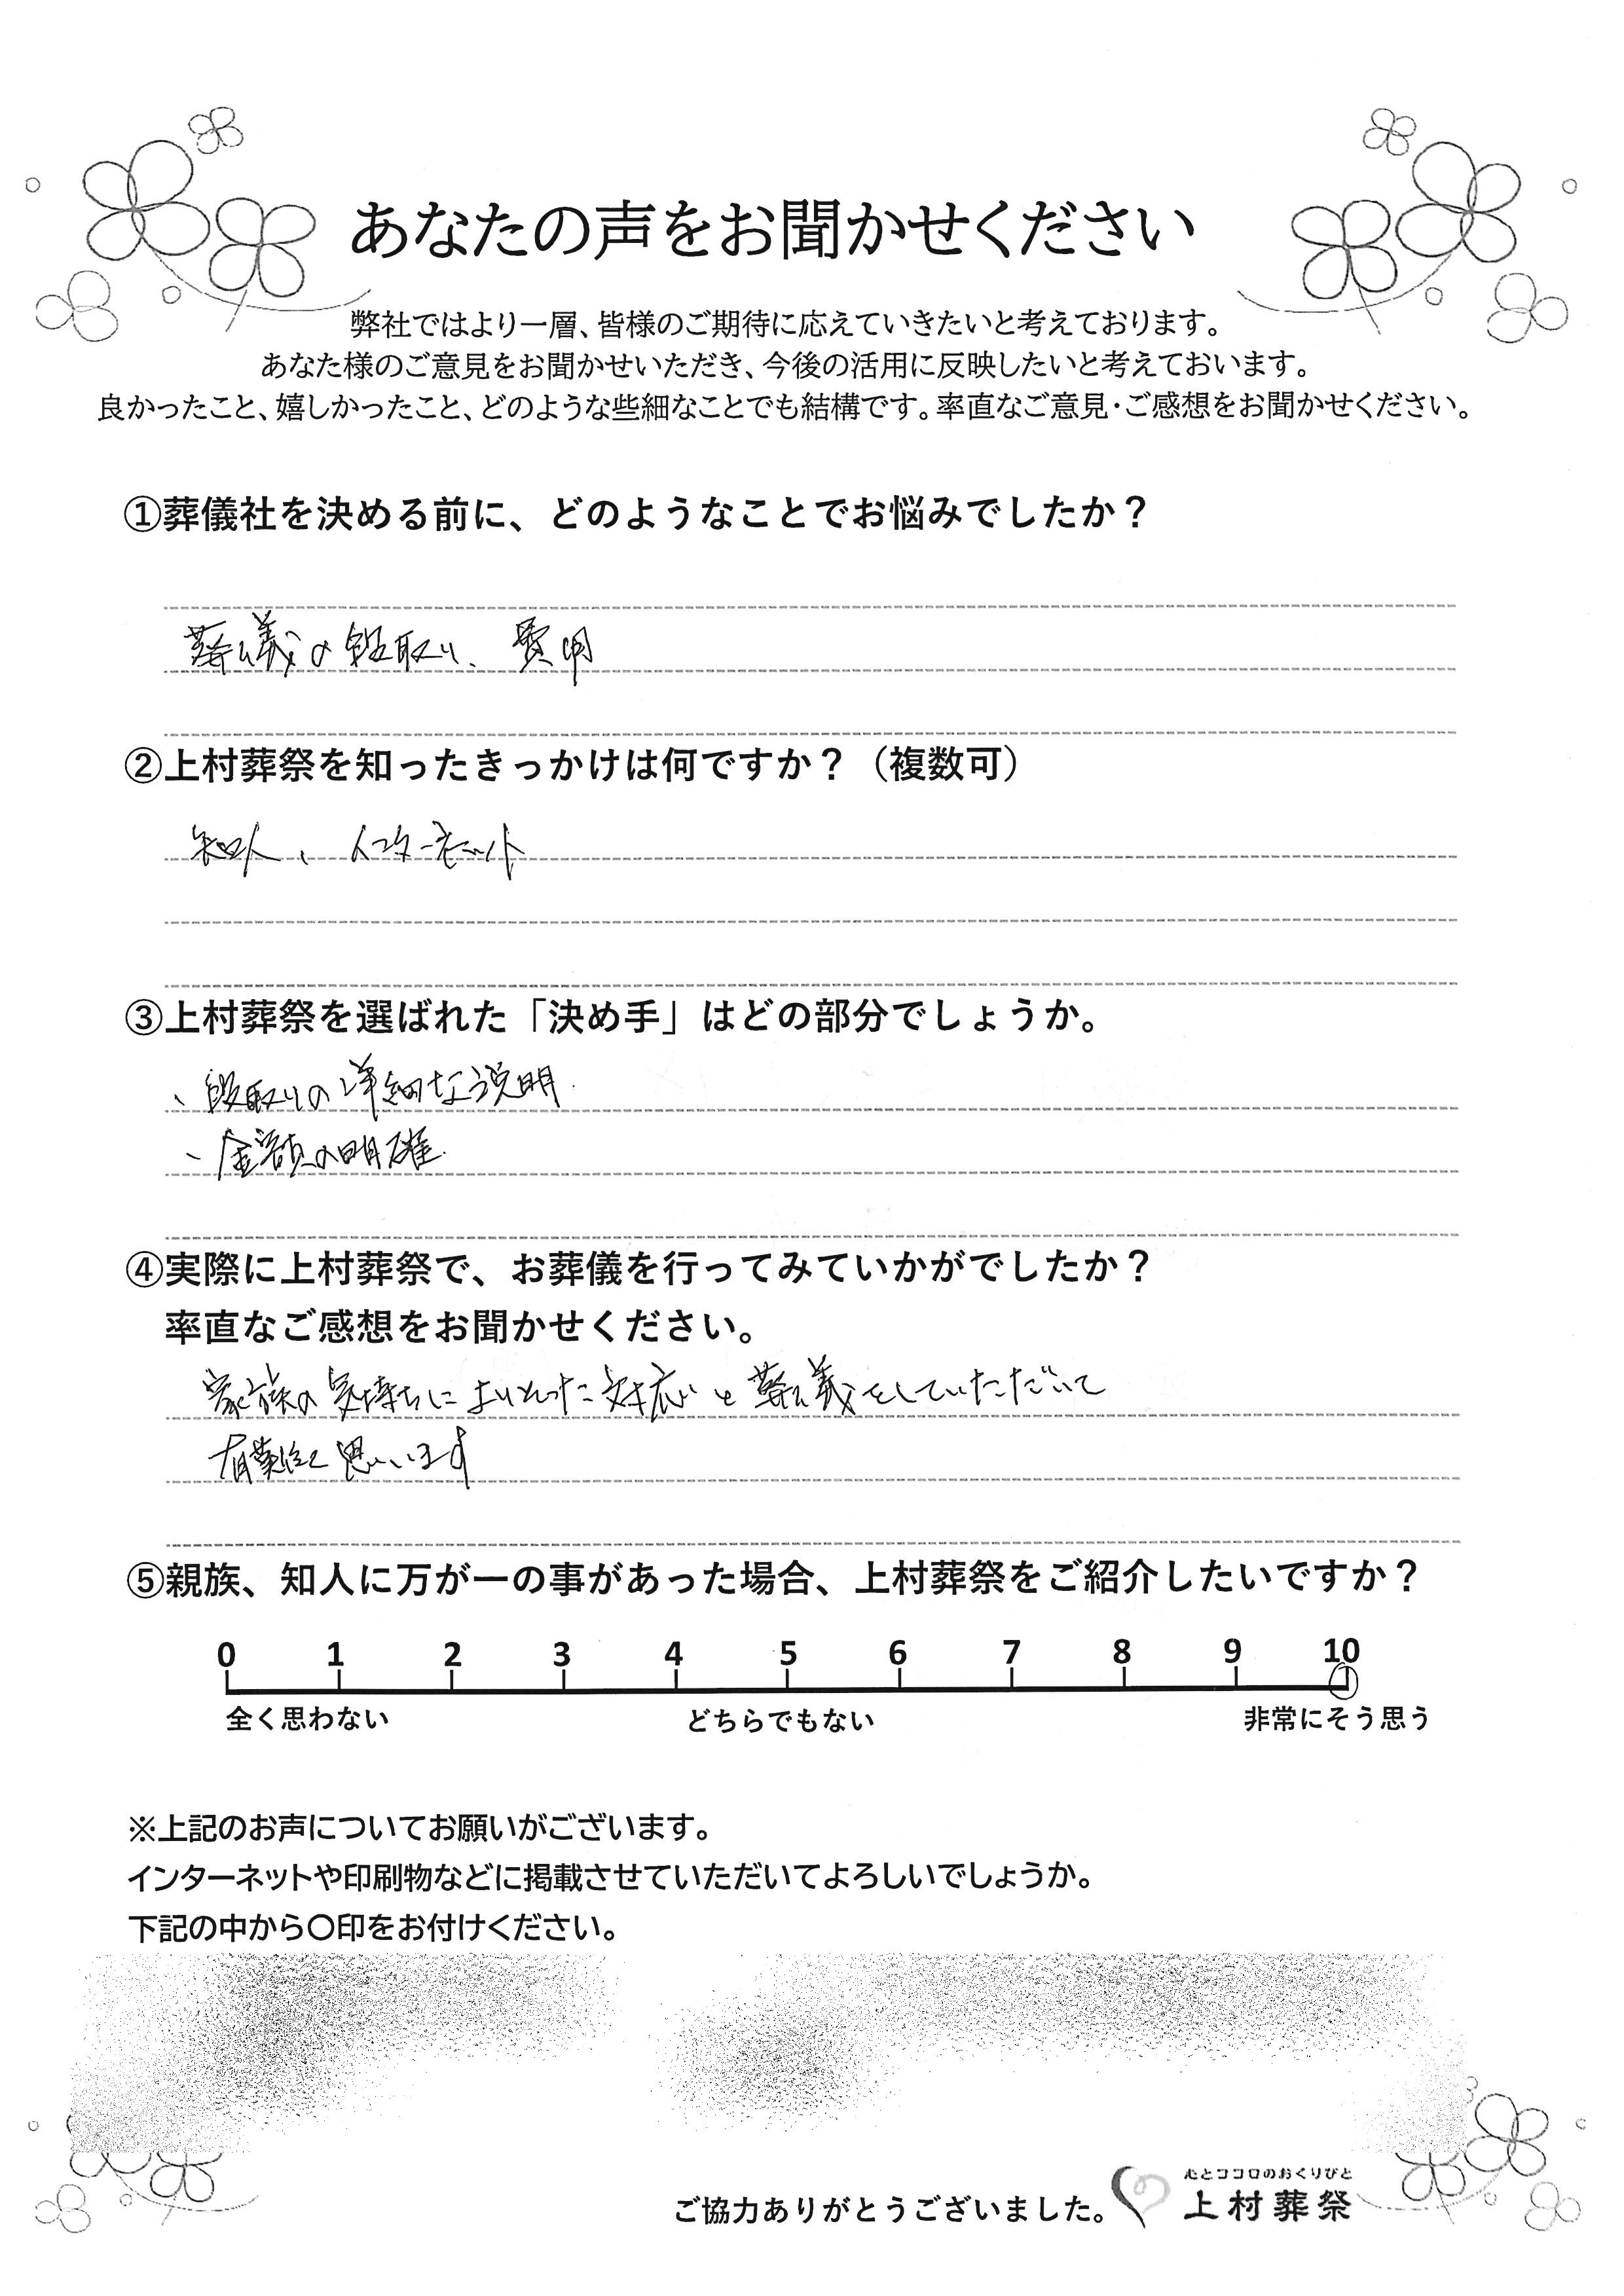 あなたの声をお聞かせください
弊社ではより一層、皆様のご期待に応えていきたいと考えております。
あなた様のご意見をお聞かせいただき、今後の活用に反映したいと考えておいます。
良かったこと、嬉しかったこと、どのような些細なことでも結構です。率直なご意見・ご感想をお聞かせください。
①葬儀社を決める前に、どのようなことでお悩みでしたか？
葬儀の段取り、費用
②上村葬祭を知ったきっかけは何ですか？（複数可）
知人、インターネット
③上村葬祭を選ばれた「決め手」はどの部分でしょうか。
、段取りの詳細な説明.
、金額の明確.
④実際に上村葬祭で、お葬儀を行ってみていかがでしたか？
率直なご感想をお聞かせください。
家族の気持ちに 対応と葬儀をしていただいて
思います
⑤親族、知人に万が一の事があった場合、上村葬祭をご紹介したいですか？
0 1 2 3 4 5 6 7 8 9 10
全く思わない どちらでもない 非常にそう思う
※上記のお声についてお願いがございます。
インターネットや印刷物などに掲載させていただいてよろしいでしょうか。
下記の中から〇印をお付けください。
心とココロのおくりびと
ご協力ありがとうございました。 上村葬祭